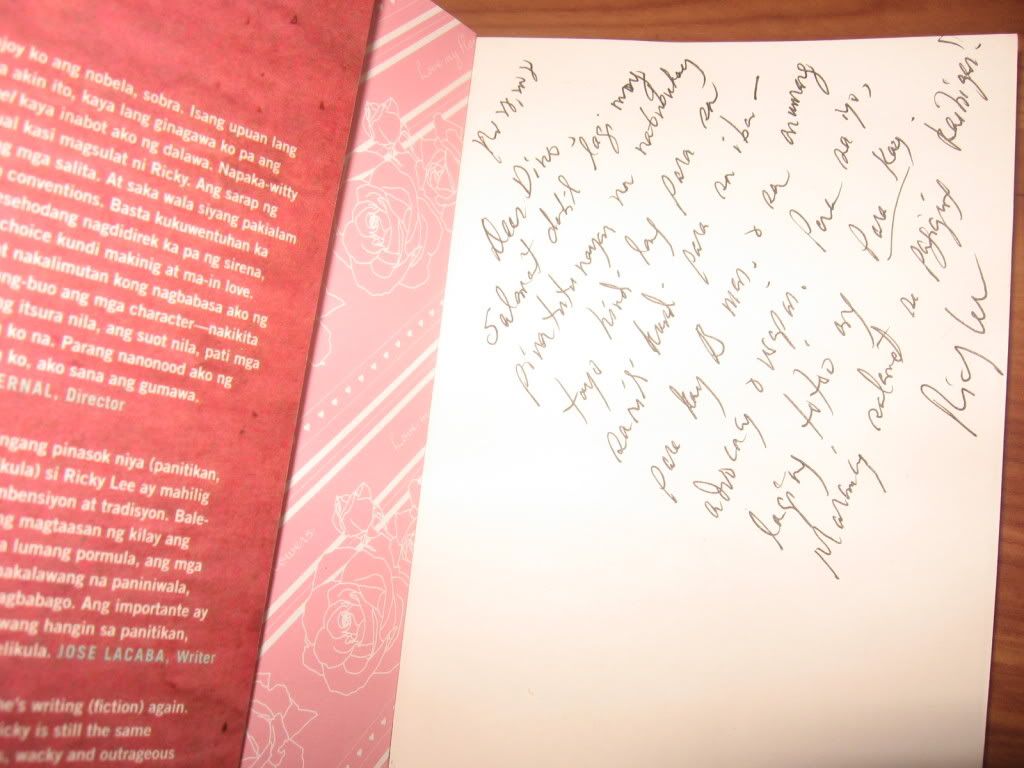 joy ko ang nobela, sobra. Isang upuan lang
a akin ito, kaya lang ginagawa ko pa ang
kaya inabot ako ng dalawa. Napaka-witty
ual kasi magsulat ni Ricky. Ang sarap ng
mga salita. At saka wala siyang pakialam
conventions. Basta kukuwentuhan ka
esehodang nagdidirek ka pa ng sirena,
choice kundi makinig at ma-in love.
at nakalimutan kong nagbabasa ako ng
ng-buo ang mga character—nakikita
g itsura nila, ang suot nila, pati mga
ko na. Parang nanonood ako ng
ko, ako sana ang gumawa.
ERNAL, Director
ngang pinasok niya (panitikan,
kula) si Ricky Lee ay mahilig
nbensiyon at tradisyon. Bale-
ng magtaasan ng kilay ang
a lumang pormula, ang mga
nakalawang na paniniwala,
agbabago. Ang importante ay
wang hangin sa panitikan,
elikula. JOSE LACABA, Writer
he's writing (fiction) again.
icky is still the same
s, wacky and outrageous
Love my
Dear Dino
Salamat dahil lagi mong
tayo hindi lang para sa
sarili kundi para sa iba—
para kay B man, o sa anumang
advocacy o usapin. Para sa iyo,
laging totoo ang Para Kay
Maraming salamat sa pagiging kaibigan!
Ricky Lee